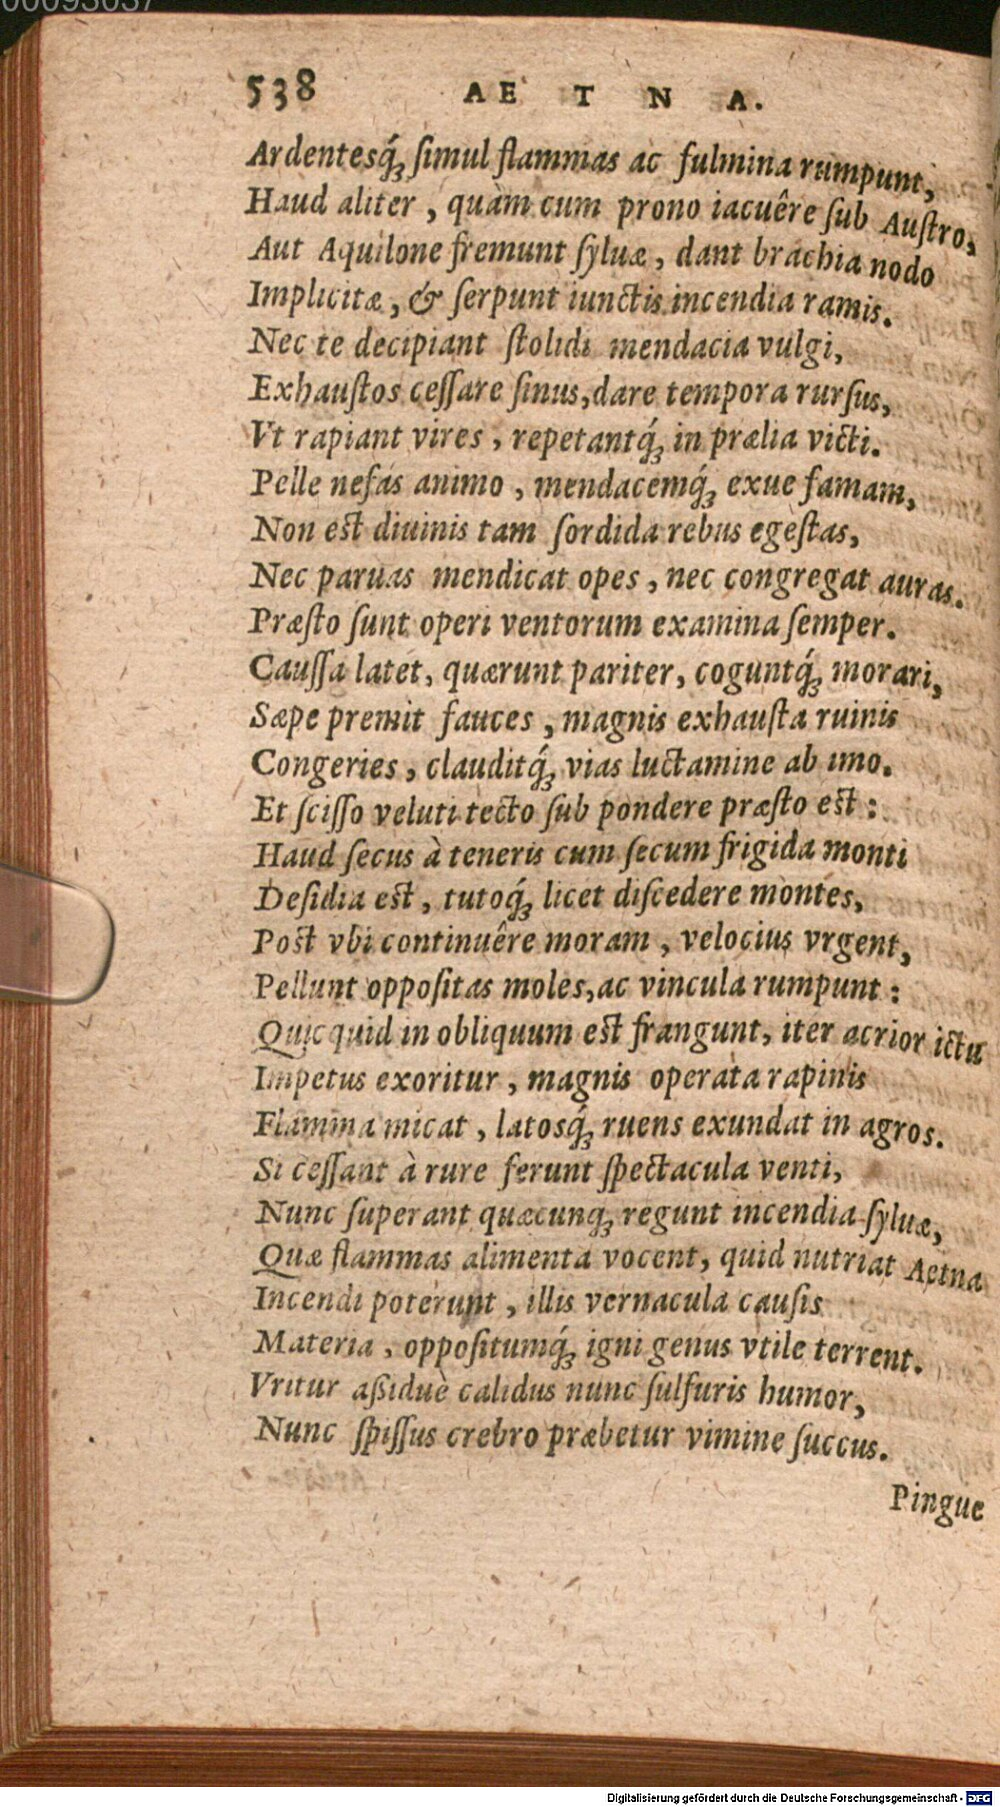 00093037
538 AETNA.
Ardentesq́ꝫ ſimul flammas ac fulmina rumpunt,
Haud aliter, quàm cum prono iacuêre ſub Auſtro,
Aut Aquilone fremunt ſyluæ, dant brachia nodo
Implicitæ, & ſerpunt iunctis incendia ramis.
Nec te decipiant ſtolidi mendacia vulgi,
Exhauſtos ceſſare ſinus, dare tempora rurſus,
Vt rapiant vires, repetantq́ꝫ in prælia victi.
Pelle nefas animo, mendacemq́ꝫ exue famam,
Non eſt diuinis tam ſordida rebus egeſtas,
Nec paruas mendicat opes, nec congregat auras.
Præſto ſunt operi ventorum examina ſemper.
Cauſſa latet, quærunt pariter, coguntq́ꝫ morari,
Sæpe premit fauces, magnis exhauſta ruinis
Congeries, clauditq́ꝫ vias luctamine ab imo.
Et ſciſſo veluti tecto ſub pondere præſto eſt:
Haud ſecus à teneris cum ſecum frigida monti
Deſidia eſt, tutoq́ꝫ licet diſcedere montes,
Poſt vbi continuêre moram, velocius vrgent,
Pellunt oppoſitas moles, ac vincula rumpunt:
Quicquid in obliquum eſt frangunt, iter acrior ictu
Impetus exoritur, magnis operata rapinis
Flamma micat, latosq́ꝫ ruens exundat in agros.
Si ceſſant à rure ferunt ſpectacula venti,
Nunc ſuperant quæcunqꝫ regunt incendia ſyluæ,
Quæ flammas alimenta vocent, quid nutriat Aetna
Incendi poterunt, illis vernacula cauſis
Materia, oppoſitumq́ꝫ igni genus vtile terrent.
Vritur aßiduè calidus nunc ſulfuris humor,
Nunc ſpiſſus crebro præbetur vimine ſuccus.
Pingue
Digitalisierung gefördert durch die Deutsche Forschungsgemeinschaft - DFG